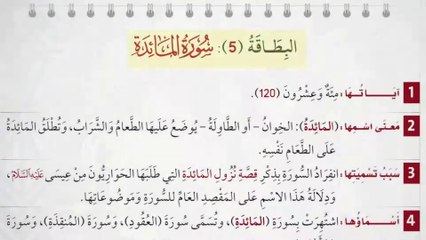 البِطَاقَةُ (5): سُورَةُ المَائِدَةِ
1 آيَاتُهَا: مِئَةٌ وَعِشْرُونَ (120).
2 مَعنَى اسمِها: (المَائِدَةُ): الخِوانُ – أَو الطَّاوِلَةُ – يُوضَعُ عَلَيهَا الطَّعامُ وَالشَّرَابُ، وَتُطْلَقُ المَائِدَةُ
عَلَى الطَّعَامِ نَفْسِهِ.
3 سَبَبُ تَسْمِيَتِها: انفِرَادُ السُّورَةِ بِذِكْرِ قِصَّةِ نُزُولِ المَائِدَةِ التِي طَلَبَهَا الحَوَارِيُّونَ مِنْ عِيسَى عَلَيْهِ السَّلَامُ،
وَدِلَالَةُ هَذَا الاسْمِ عَلَى المَقْصِدِ العَامِّ للسُّورَةِ وَمَوضُوعَاتِهَا.
4 أَسْمَاؤُها: اشتُهِرَتْ بِسُورَةِ (المَائِدَةِ)، وَتُسَمَّى سُورَةَ (العُقُودِ)، وَسُورَةَ (المُنقِذَةِ)، وَسُورَةَ